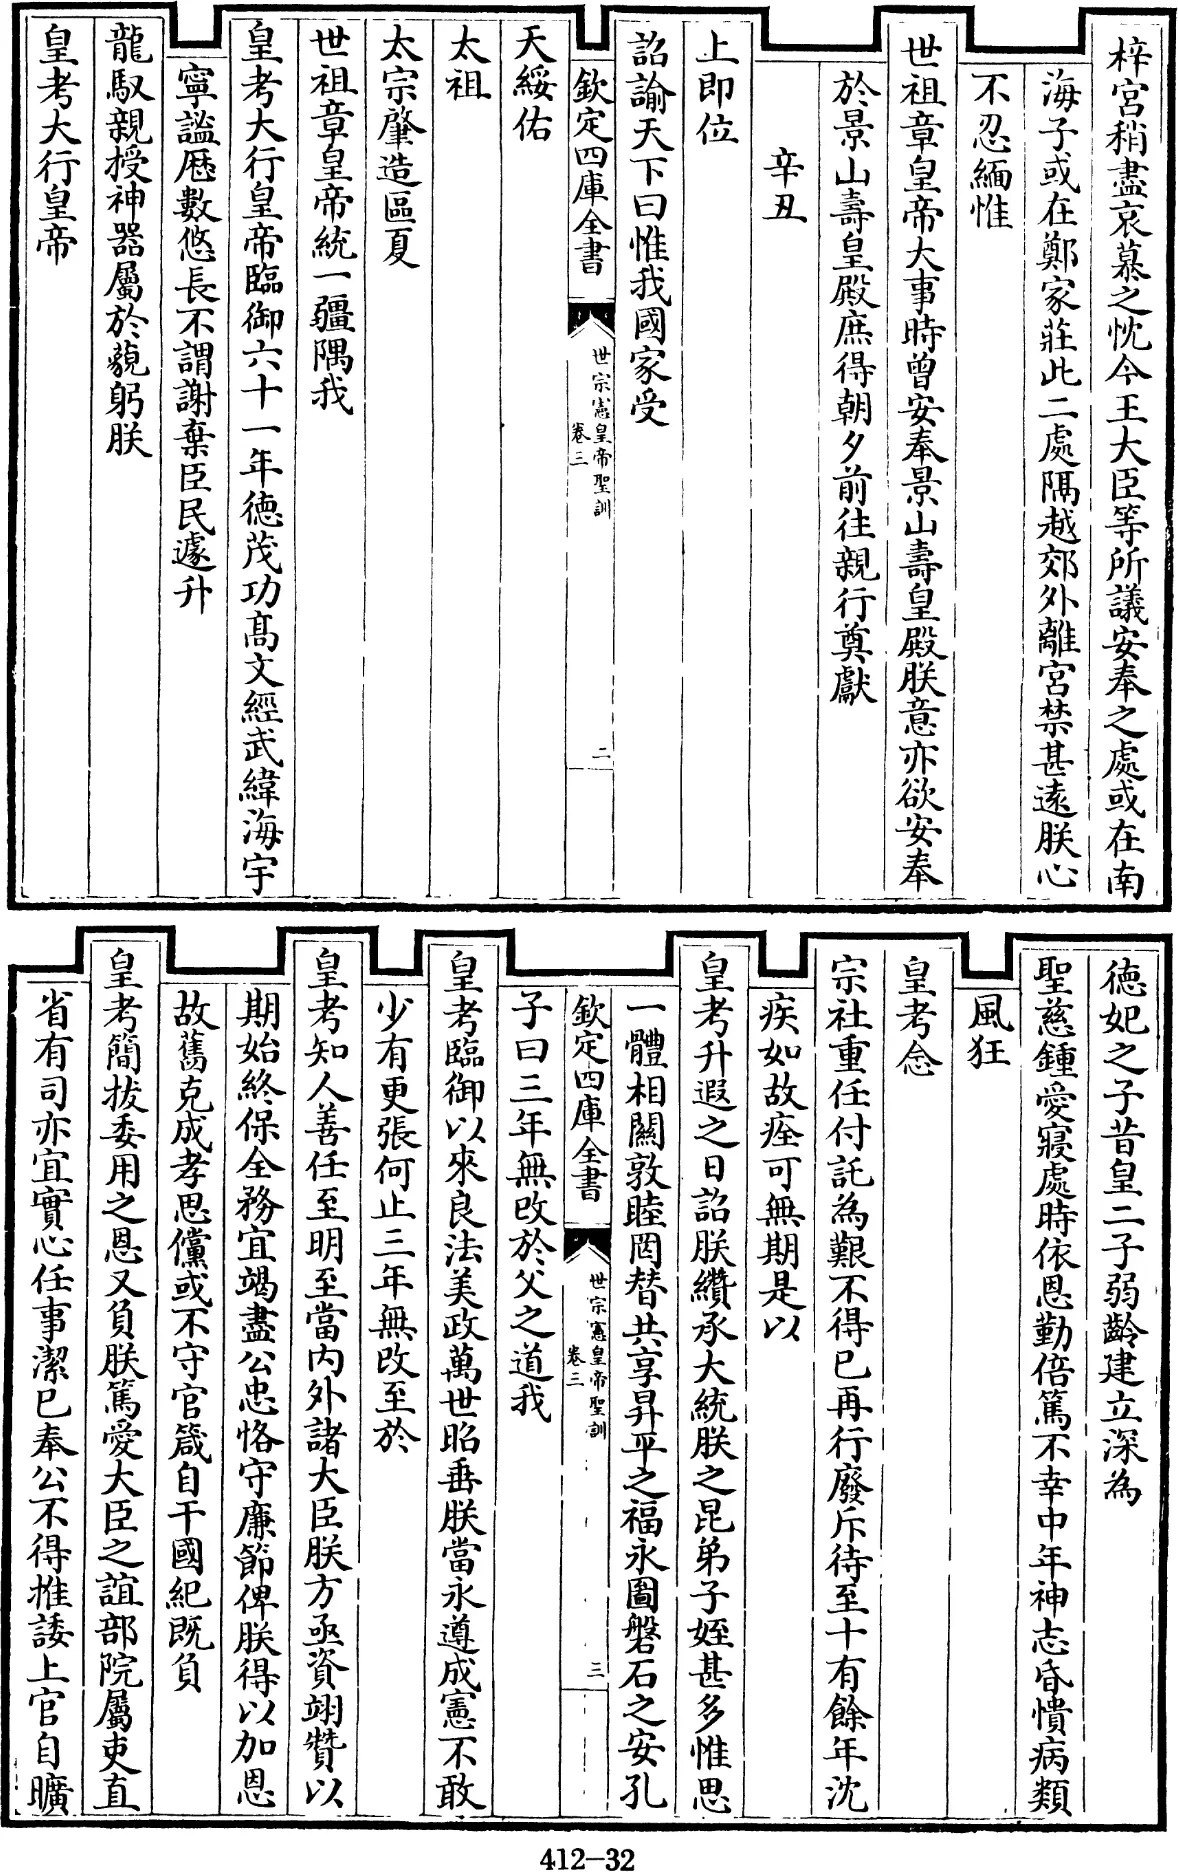 梓宮稍盡哀慕之忱今王大臣等所議安奉之處或在南
海子或在鄭家莊此二處隅越郊外離宮禁甚遠朕心
不忍緬惟
世祖章皇帝大事時曾安奉景山壽皇殿朕意亦欲安奉
於景山壽皇殿庶得朝夕前往親行奠獻
辛丑
上即位
詔諭天下曰惟我國家受
欽定四庫全書
世宗憲皇帝聖訓
卷三
二
天綏佑
太祖
太宗肇造區夏
世祖章皇帝統一疆隅我
皇考大行皇帝臨御六十一年德茂功髙文經武緯海宇
寧謐厯數悠長不謂謝棄臣民遽升
龍馭親授神器屬於藐躬朕
皇考大行皇帝
德妃之子昔皇二子弱齡建立深為
聖慈鍾愛寢處時依恩勤倍篤不幸中年神志昏憒病類
風狂
皇考念
宗社重任付託為艱不得已再行廢斥待至十有餘年沈
疾如故痊可無期是以
皇考升遐之日詔朕纘承大統朕之昆弟子姪甚多惟思
一體相關敦睦罔替共享昇平之福永圖磐石之安孔
欽定四庫全書
世宗憲皇帝聖訓
卷三
三
子曰三年無改於父之道我
皇考臨御以來良法美政萬世昭垂朕當永遵成憲不敢
少有更張何止三年無改至於
皇考知人善任至明至當内外諸大臣朕方亟資翊贊以
期始終保全務宜竭盡公忠恪守廉節俾朕得以加恩
故舊克成孝思儻或不守官箴自干國紀既負
皇考簡拔委用之恩又負朕篤愛大臣之誼部院屬吏直
省有司亦宜實心任事潔已奉公不得推諉上官自曠
412-32